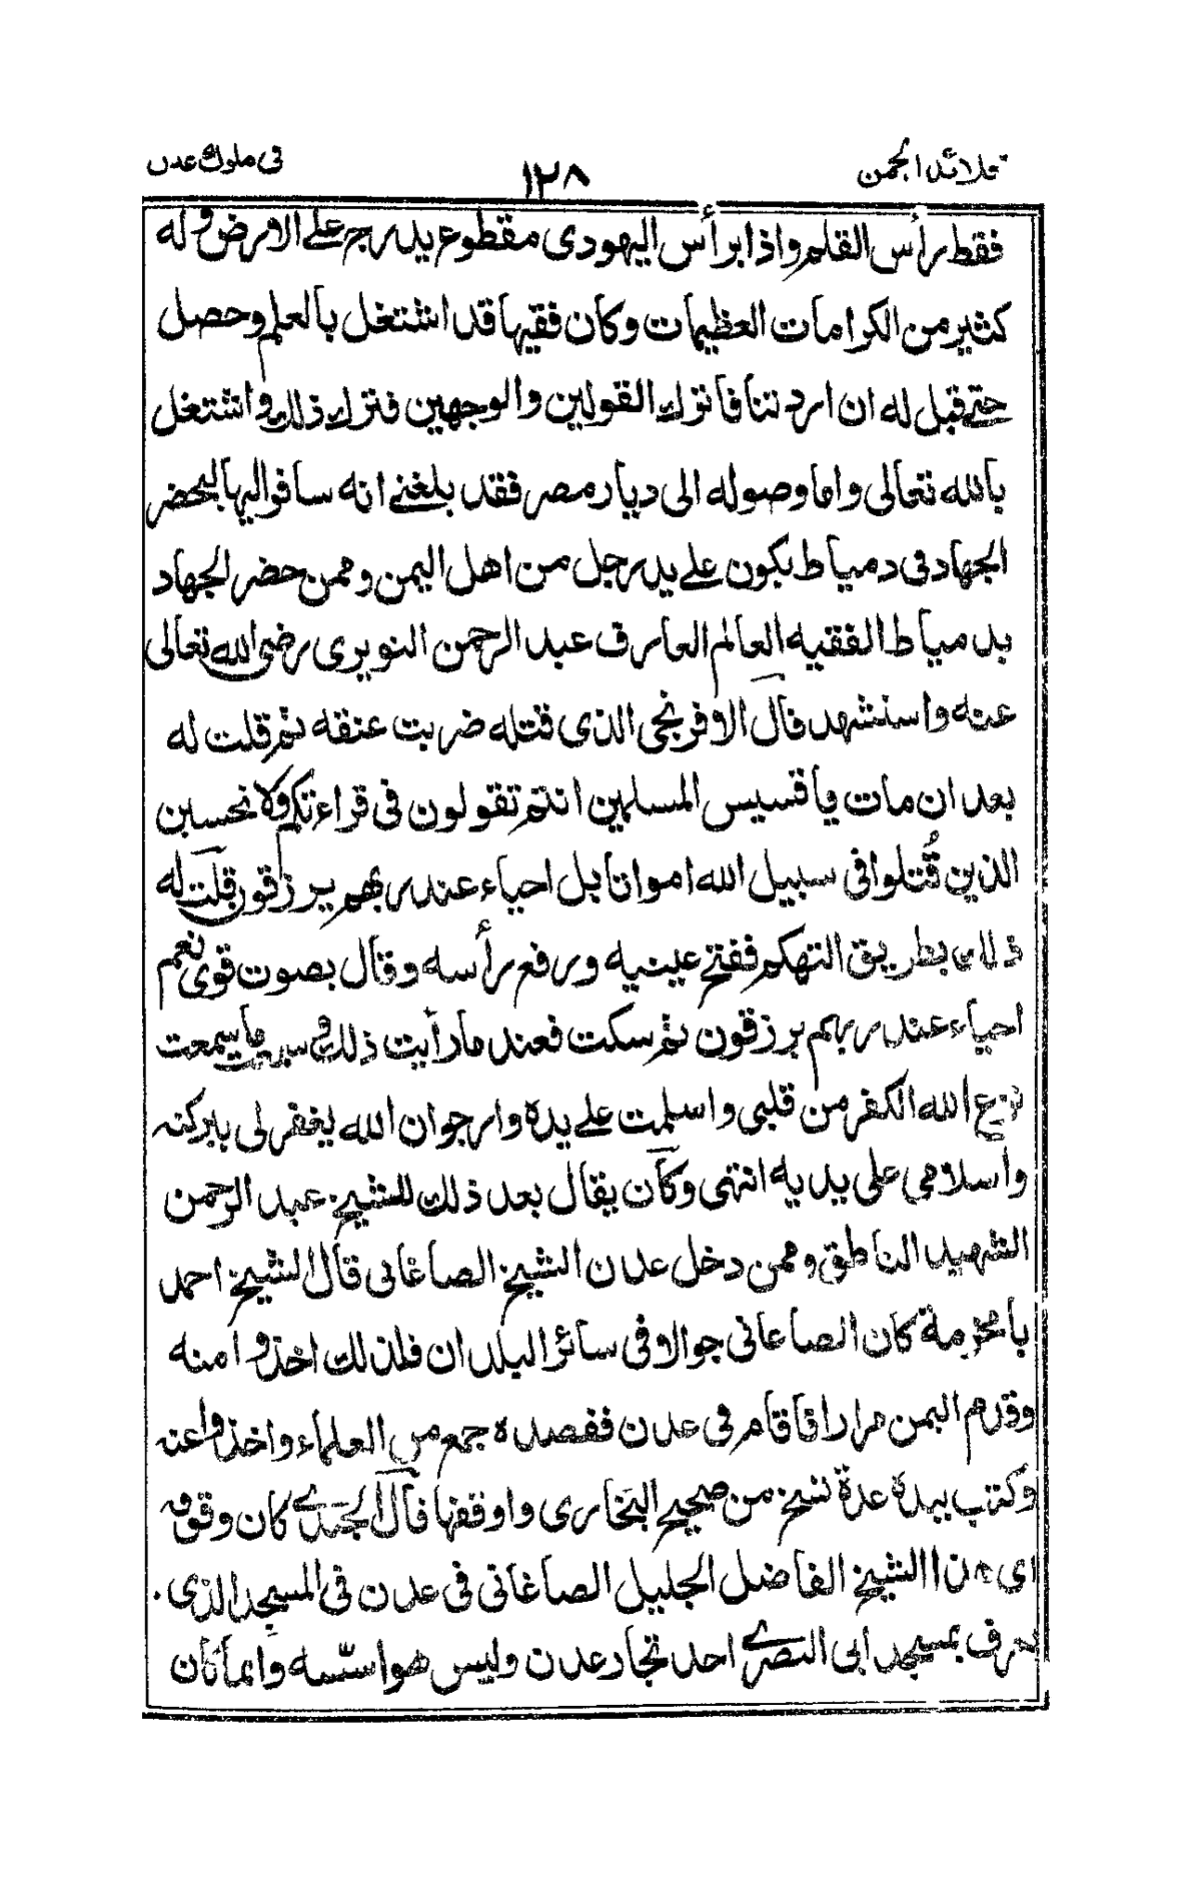 قلائد الجمن ١٢٨ فى ملوك عدن
فقط رأس القلم واذا برأس اليهودى مقطوع يدحرج على الارض وله
كثير من الكرامات العظيمات وكان فقيها قد اشتغل بالعلم وحصل
حتى قيل له ان اردتنا فاترك القولين والوجهين فترك ذلك واشتغل
بالله تعالى واما وصوله الى ديار مصر فقد بلغنى انه سافر اليها ليحضر
الجهاد فى دمياط يكون على يد رجل من اهل اليمن وممن حضر الجهاد
بدمياط الفقيه العالم العارف عبد الرحمن النويرى رضى الله تعالى
عنه واستشهد قال الافرنجى الذى قتله ضربت عنقه ثم قلت له
بعد ان مات يا قسيس المسلمين انتم تقولون فى قراءتكم ولا تحسبن
الذين قُتلوا فى سبيل الله امواتا بل احياء عند ربهم يرزقون قلت له
ذلك بطريق التهكم ففتح عينيه ورفع رأسه وقال بصوت قوى نعم
احياء عند ربهم يرزقون ثم سكت فعند ما رأيت ذلك وسمعت ما سمعت
نزع الله الكفر من قلبى واسلمت على يده وارجو ان الله يغفر لى ببركته
واسلامى على يديه انتهى وكان يقال بعد ذلك للشيخ عبد الرحمن
الشهيد الناطق وممن دخل عدن الشيخ الصاغانى قال الشيخ احمد
بامخرمة كان الصاغانى جوالا فى سائر البلدان فلذلك اخذوا منه
وقدم اليمن مرارا فاقام فى عدن فقصده جمع من العلماء واخذوا عنه
وكتب بيده عدة نسخ من صحيح البخارى واوقفها قال الجندى كان وقوف
اى عدن الشيخ الفاضل الجليل الصاغانى فى عدن فى المسجد الذى
يعرف بمسجد ابى النصرى احد تجار عدن وليس هو اسسه وانما كان